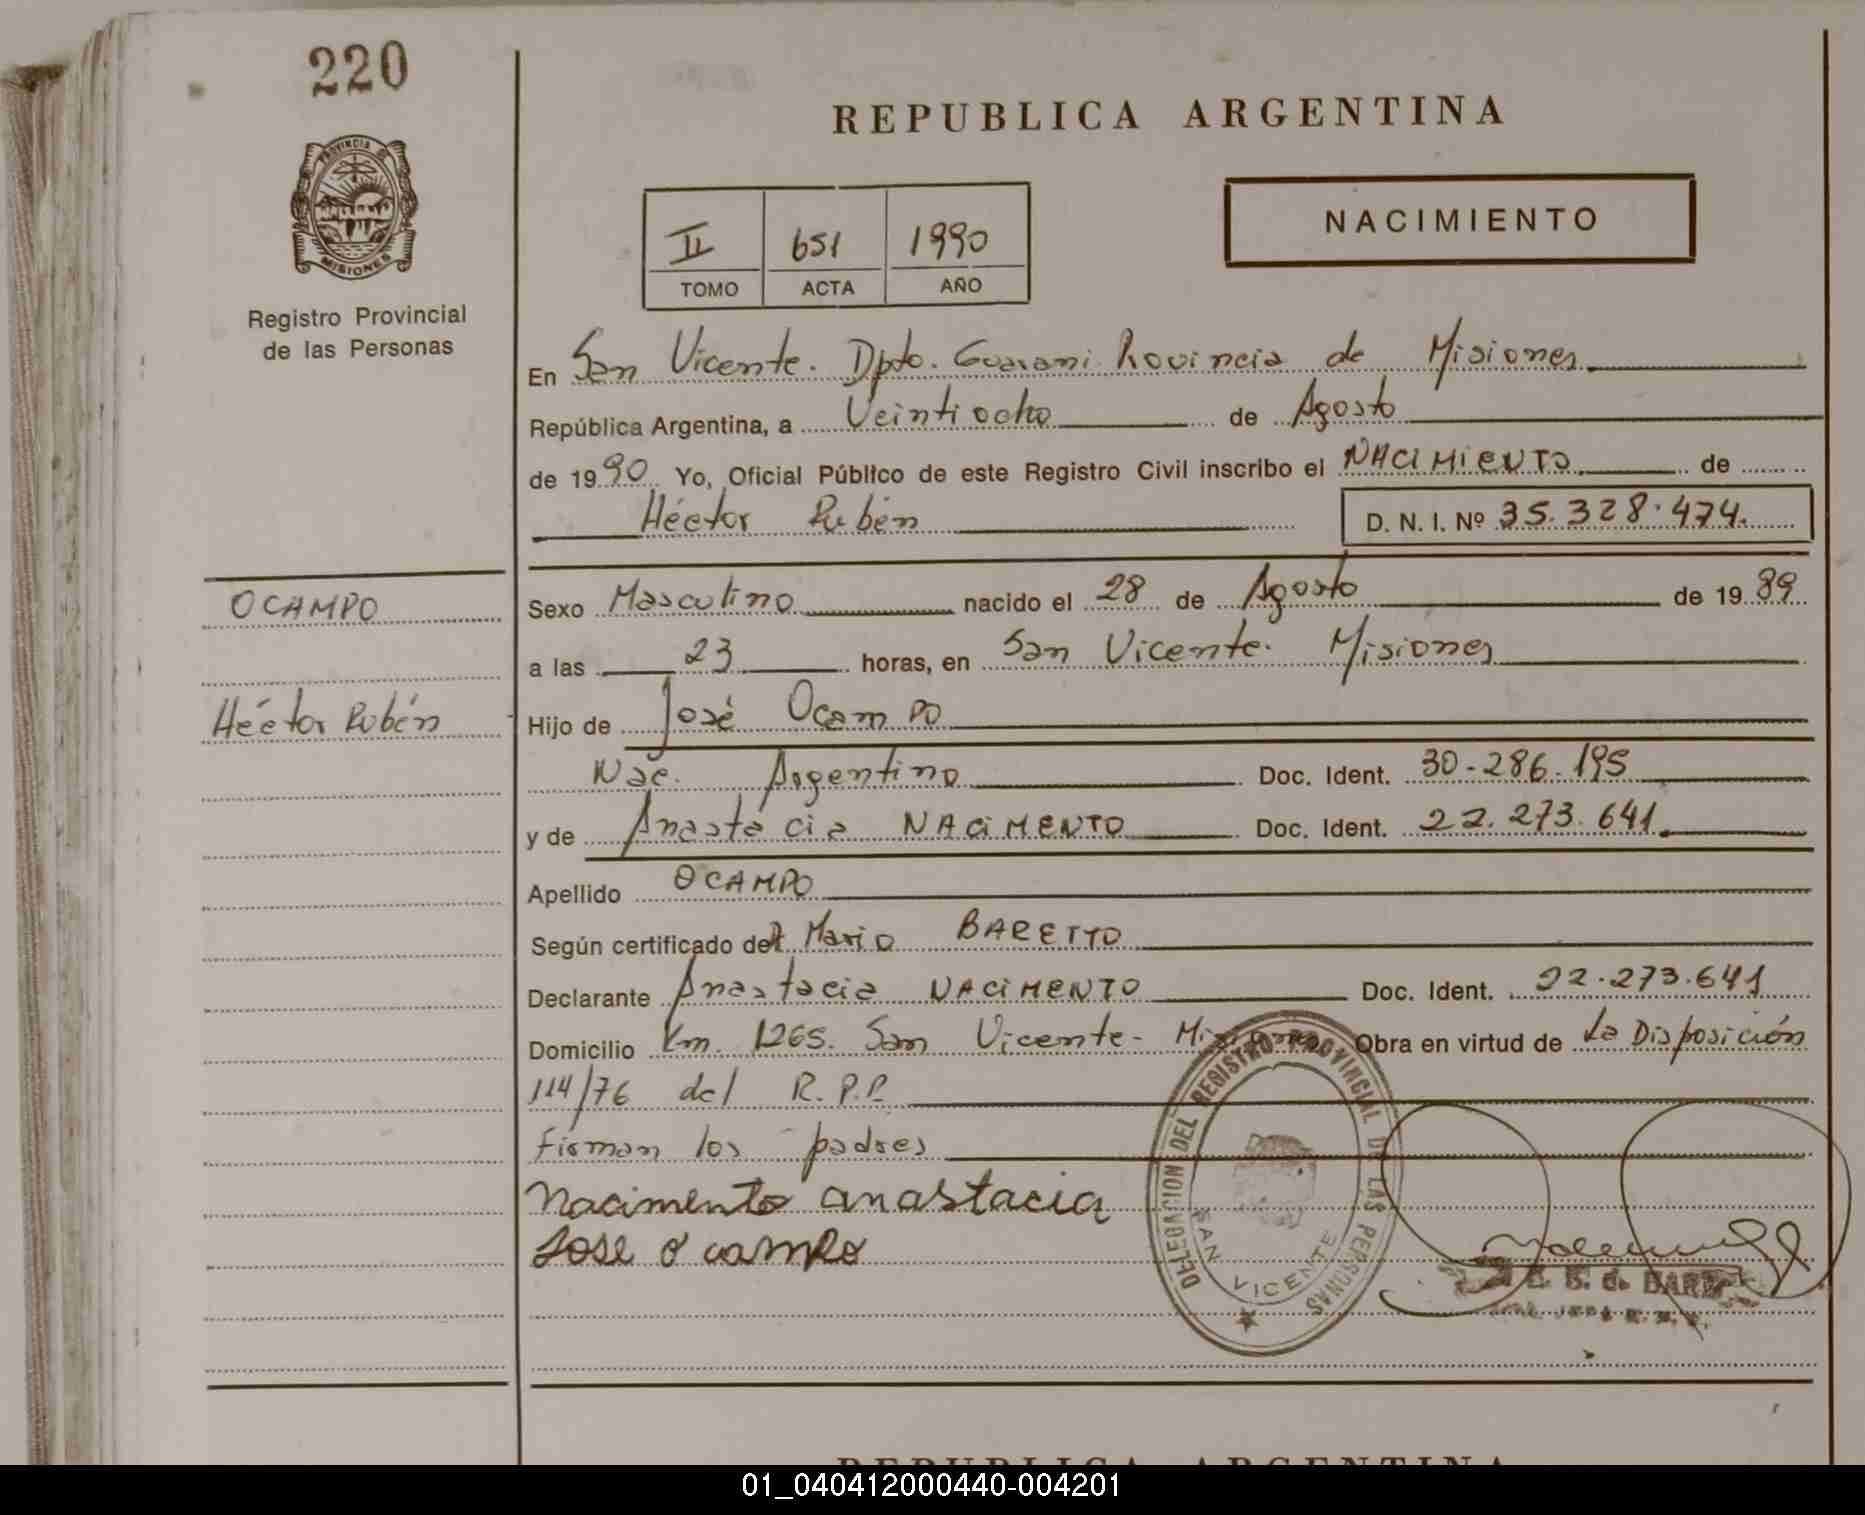 220
REPUBLICA ARGENTINA
PROVINCIA DE
MISIONES
Registro Provincial
de las Personas
II 651 1990
TOMO ACTA AÑO
NACIMIENTO
En San Vicente. Dpto. Guarani Provincia de Misiones
República Argentina, a Veintiocho de Agosto
de 1990 Yo, Oficial Público de este Registro Civil inscribo el NACIMIENTO de
Héctor Rubén D. N. I. Nº 35.328.474.
OCAMPO
Héctor Rubén
Sexo Masculino nacido el 28 de Agosto de 1989
a las 23 horas, en San Vicente. Misiones
Hijo de José Ocampo
Nac. Argentino Doc. Ident. 30-286.195
y de Anastacia NACIMENTO Doc. Ident. 22.273.641.
Apellido OCAMPO
Según certificado del Mario BARETTO
Declarante Anastacia NACIMENTO Doc. Ident. 22.273.641
Domicilio Km. 1265. San Vicente- Misiones Obra en virtud de La Disposición
114/76 del R.P.P.
Firman los padres
Nacimento anastacia
Jose o campo
DELEGACION DEL REGISTRO PROVINCIAL DE LAS PERSONAS
SAN VICENTE
REPUBLICA ARGENTINA
01_040412000440-004201